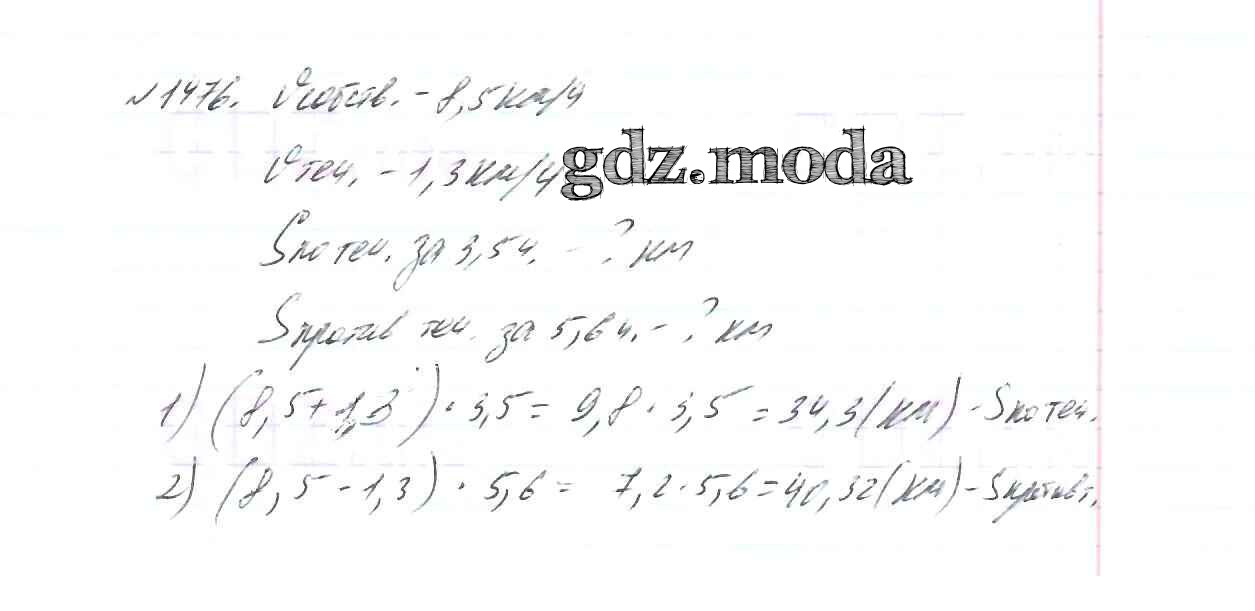 №1476. Vсобств. - 8,5 км/ч
Vтеч. - 1,3 км/ч
gdz.moda
Sпо теч. за 3,5 ч. - ? км
Sпротив теч. за 5,6 ч. - ? км
1) (8,5+1,3) · 3,5 = 9,8 · 3,5 = 34,3 (км) - Sпо теч.
2) (8,5 - 1,3) · 5,6 = 7,2 · 5,6 = 40,32 (км) - Sпротив т.